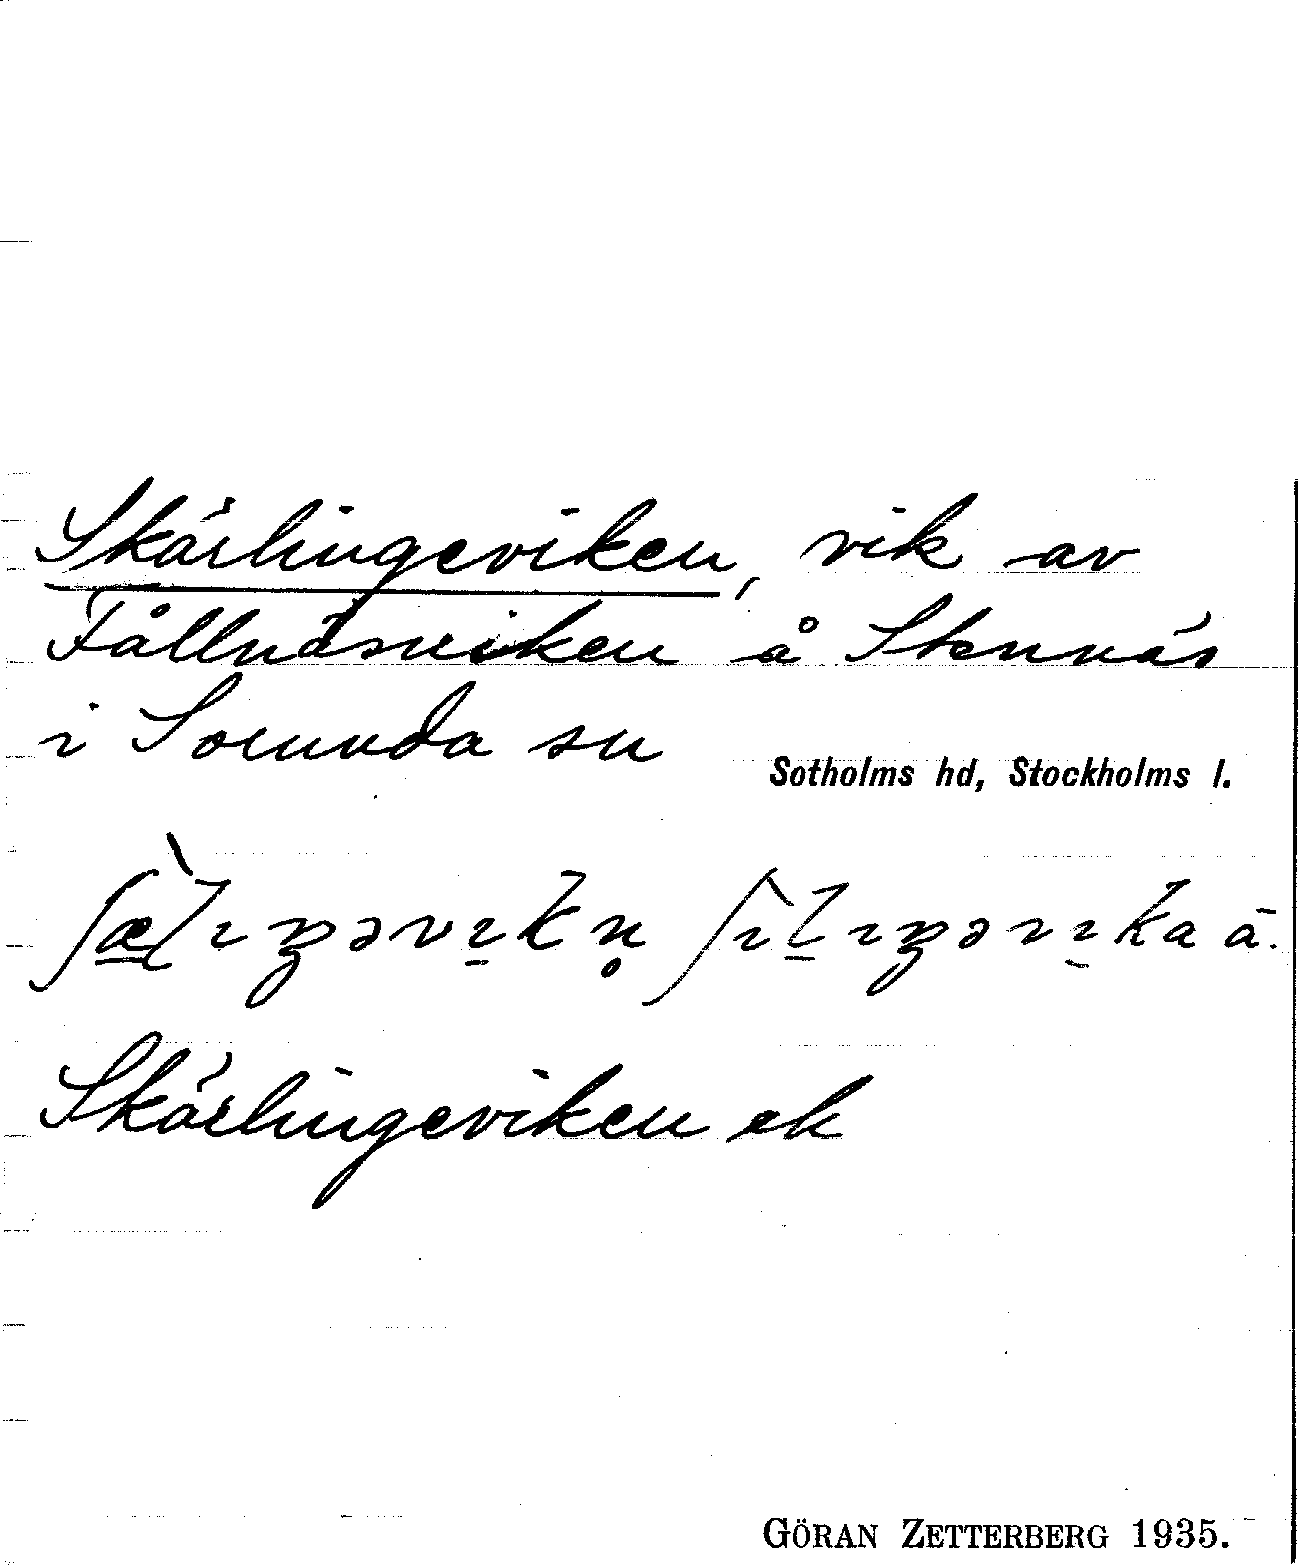 Skärlingeviken, vik av
Fållnäsviken å Stennäs
i Sorunda sn
Sotholms hd, Stockholms l.
Skärlingeviken ek
GÖRAN ZETTERBERG 1935.